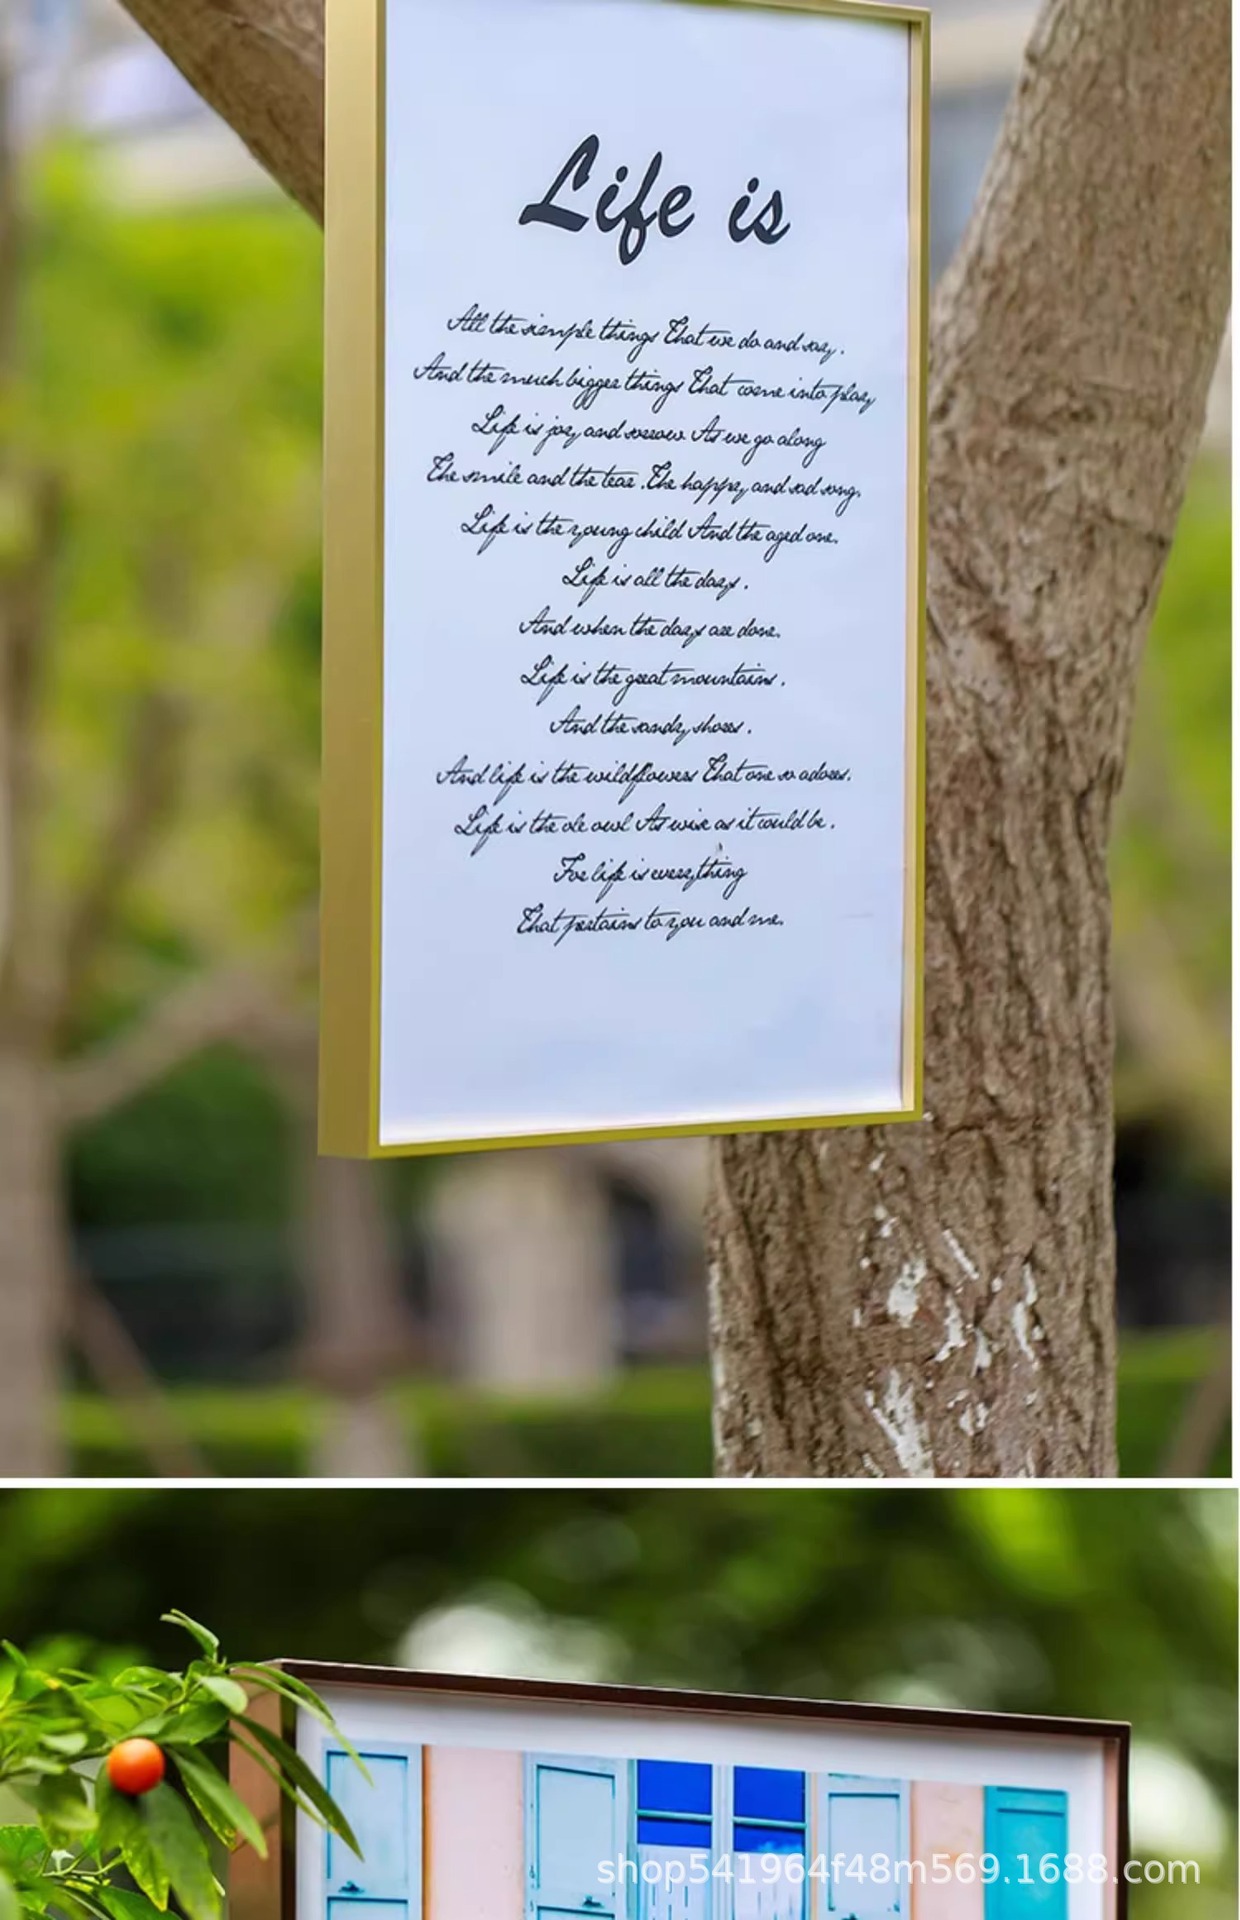 Life is
All the simple things That we do and say.
And the much bigger things That come into play
Life is joy and sorrow As we go along
The smile and the tear .The happy and sad song.
Life is the young child And the aged one.
Life is all the days.
And when the days are done.
Life is the great mountains.
And the sandy shores.
And life is the wildflowers That one so adores.
Life is the ole owl As wise as it could be.
For life is everything
That pertains to you and me.
shop541964f48m569.1688.com